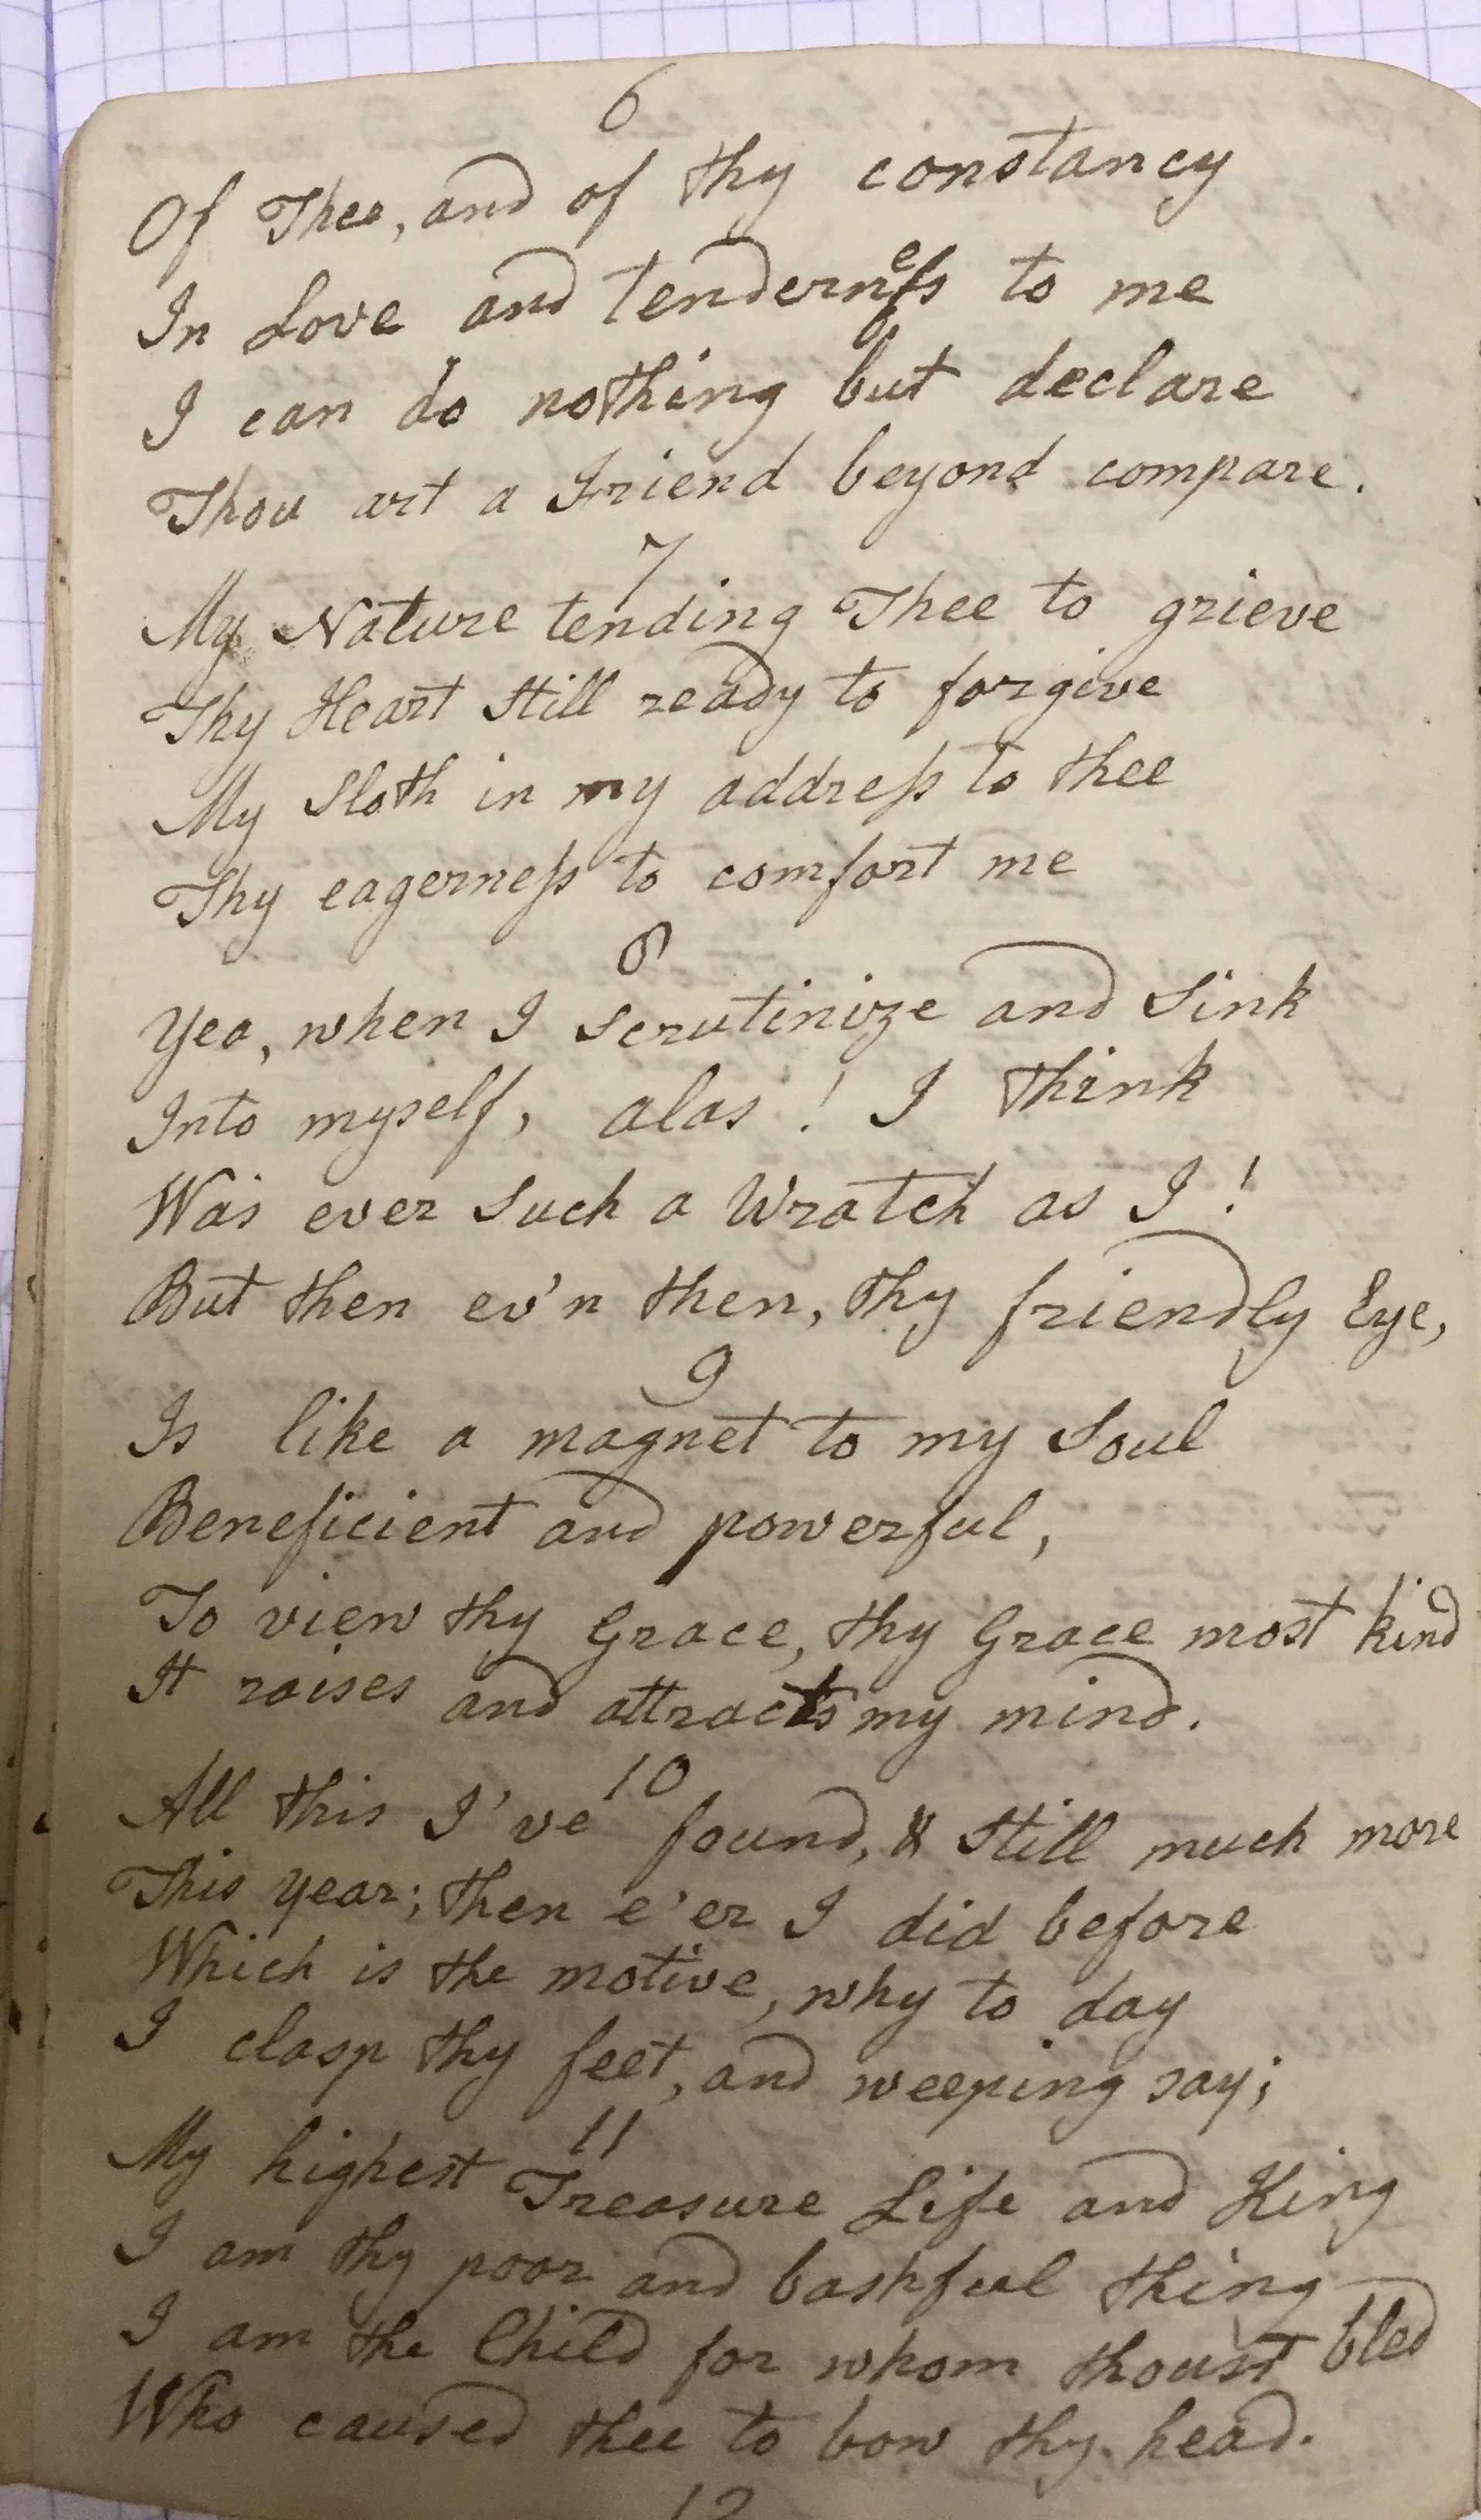 6
Of Thee, and of thy constancy
In Love and tenderneſs to me
I can do nothing but declare
Thou art a Friend beyond compare.
7
My Nature tending Thee to grieve
Thy Heart Still ready to forgive
My Sloth in my addreſs to thee
Thy eagerneſs to comfort me
8
Yea, when I Scrutinize and Sink
Into myself, alas! I think
Was ever Such a Wratch as I!
But then ev'n then, thy friendly Eye,
9
Is like a magnet to my Soul
Beneficient and powerful,
To view thy Grace, thy Grace most kind
It raises and attracts my mind.
10
All this I've found, & Still much more
This year; then e'er I did before
Which is the motive, why to day
I clasp thy feet, and weeping say;
11
My highest Treasure Life and King
I am thy poor and bashful thing
I am the Child for whom thoust bled
Who caused thee to bow thy head.
12